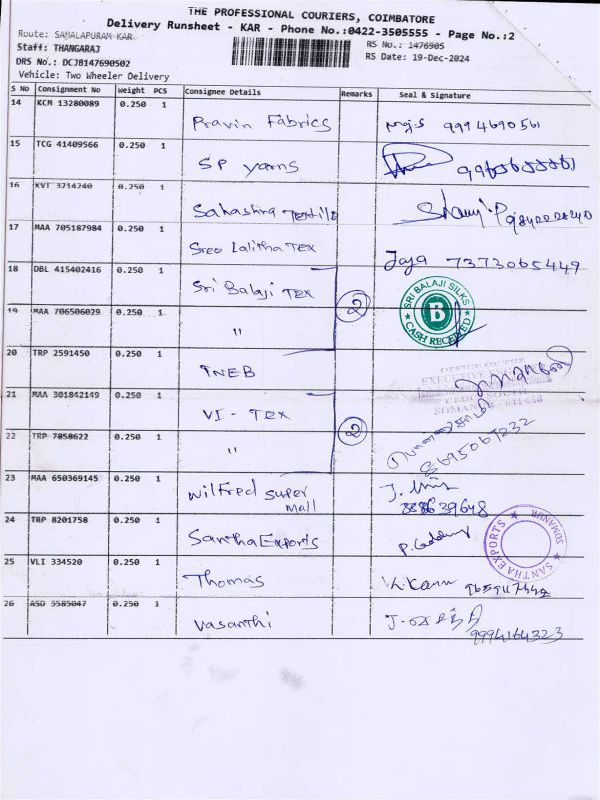 THE PROFESSIONAL COURIERS, COIMBATORE
Delivery Runsheet - KAR - Phone No.:0422-3505555 - Page No.:2
Route: SAMALAPURAM KAR
RS No.: 1476905
Staff: THANGARAJ
RS Date: 19-Dec-2024
DRS No.: DCJB147690502
Vehicle: Two Wheeler Delivery
S No Consignment No Weight PCS Consignee Details Remarks Seal & Signature
14 KCM 13280089 0.250 1 Pravin Fabrics 9994690561
15 TCG 41409566 0.250 1 SP yarns
16 KVT 3214240 0.250 1 Sahashra Textile
17 MAA 705187984 0.250 1 Sree Lalitha Tex Jaya 7373065449
18 DBL 415402416 0.250 1 Sri Balaji Tex 2 SRI BALAJI SILKS B CASH RECEIVED
19 MAA 706506029 0.250 1 "
20 TRP 2591450 0.250 1 TNEB OFFICE OF THE
21 MAA 301842149 0.250 1 VI - Tex 2
22 TRP 7858622 0.250 1 " 8695067232
23 MAA 650369145 0.250 1 Wilfred Super Mall
24 TRP 8201758 0.250 1 Santha Exports SANTHA EXPORTS SOMANUR
25 VLI 334520 0.250 1 Thomas
26 ASD 3585047 0.250 1 Vasanthi J-வசந்தி 9994164323